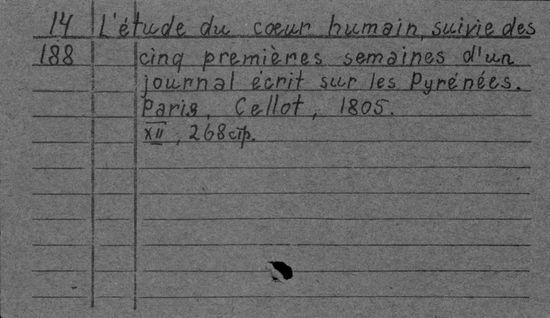 14 L'étude du cœur humain, suivie des
188 cinq premières semaines d'un
journal écrit sur les Pyrénées.
Paris, Cellot, 1805.
XII, 268 стр.